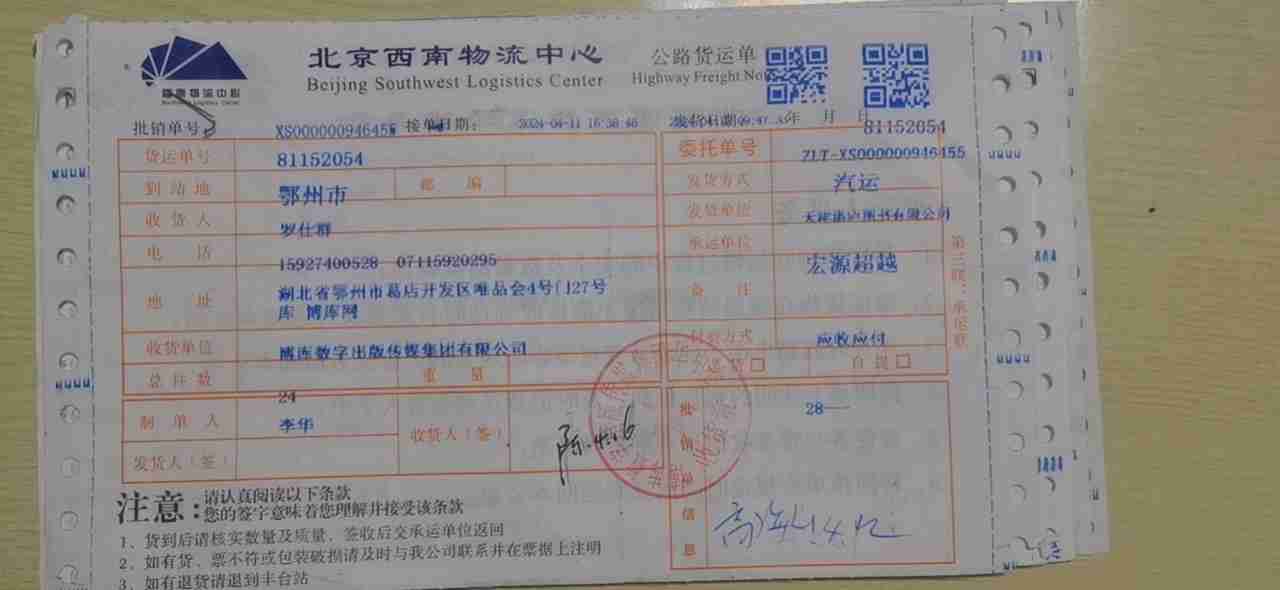 北京西南物流中心 公路货运单
Beijing Southwest Logistics Center Highway Freight No
西南物流中心
批销单号 接单日期: 2024-04-11 16:38:46 发货日期 年 月 日
81152054
货运单号 81152054 委托单号 ZLT-XS000000946455
到站地 鄂州市 邮 编 发货方式 汽运
收货人 罗仕群 发货单位
电 话 15927400528 07115920295 承运单位 宏源超越
地 址 湖北省鄂州市葛店开发区唯品会4号门27号 备 注
库 博库网
收货单位 博库数字出版传媒集团有限公司 付款方式 应收应付
总件数 24 重 量 送货口 自提口
制单人 李华 收货人(签) 陈 4.16 批销信息 28
发货人(签)
第三联:承运联
注意: 请认真阅读以下条款
您的签字意味着您理解并接受该条款
1、货到后请核实数量及质量,签收后交承运单位返回
2、如有货、票不符或包装破损请及时与我公司联系并在票据上注明
3、如有退货请退到丰台站